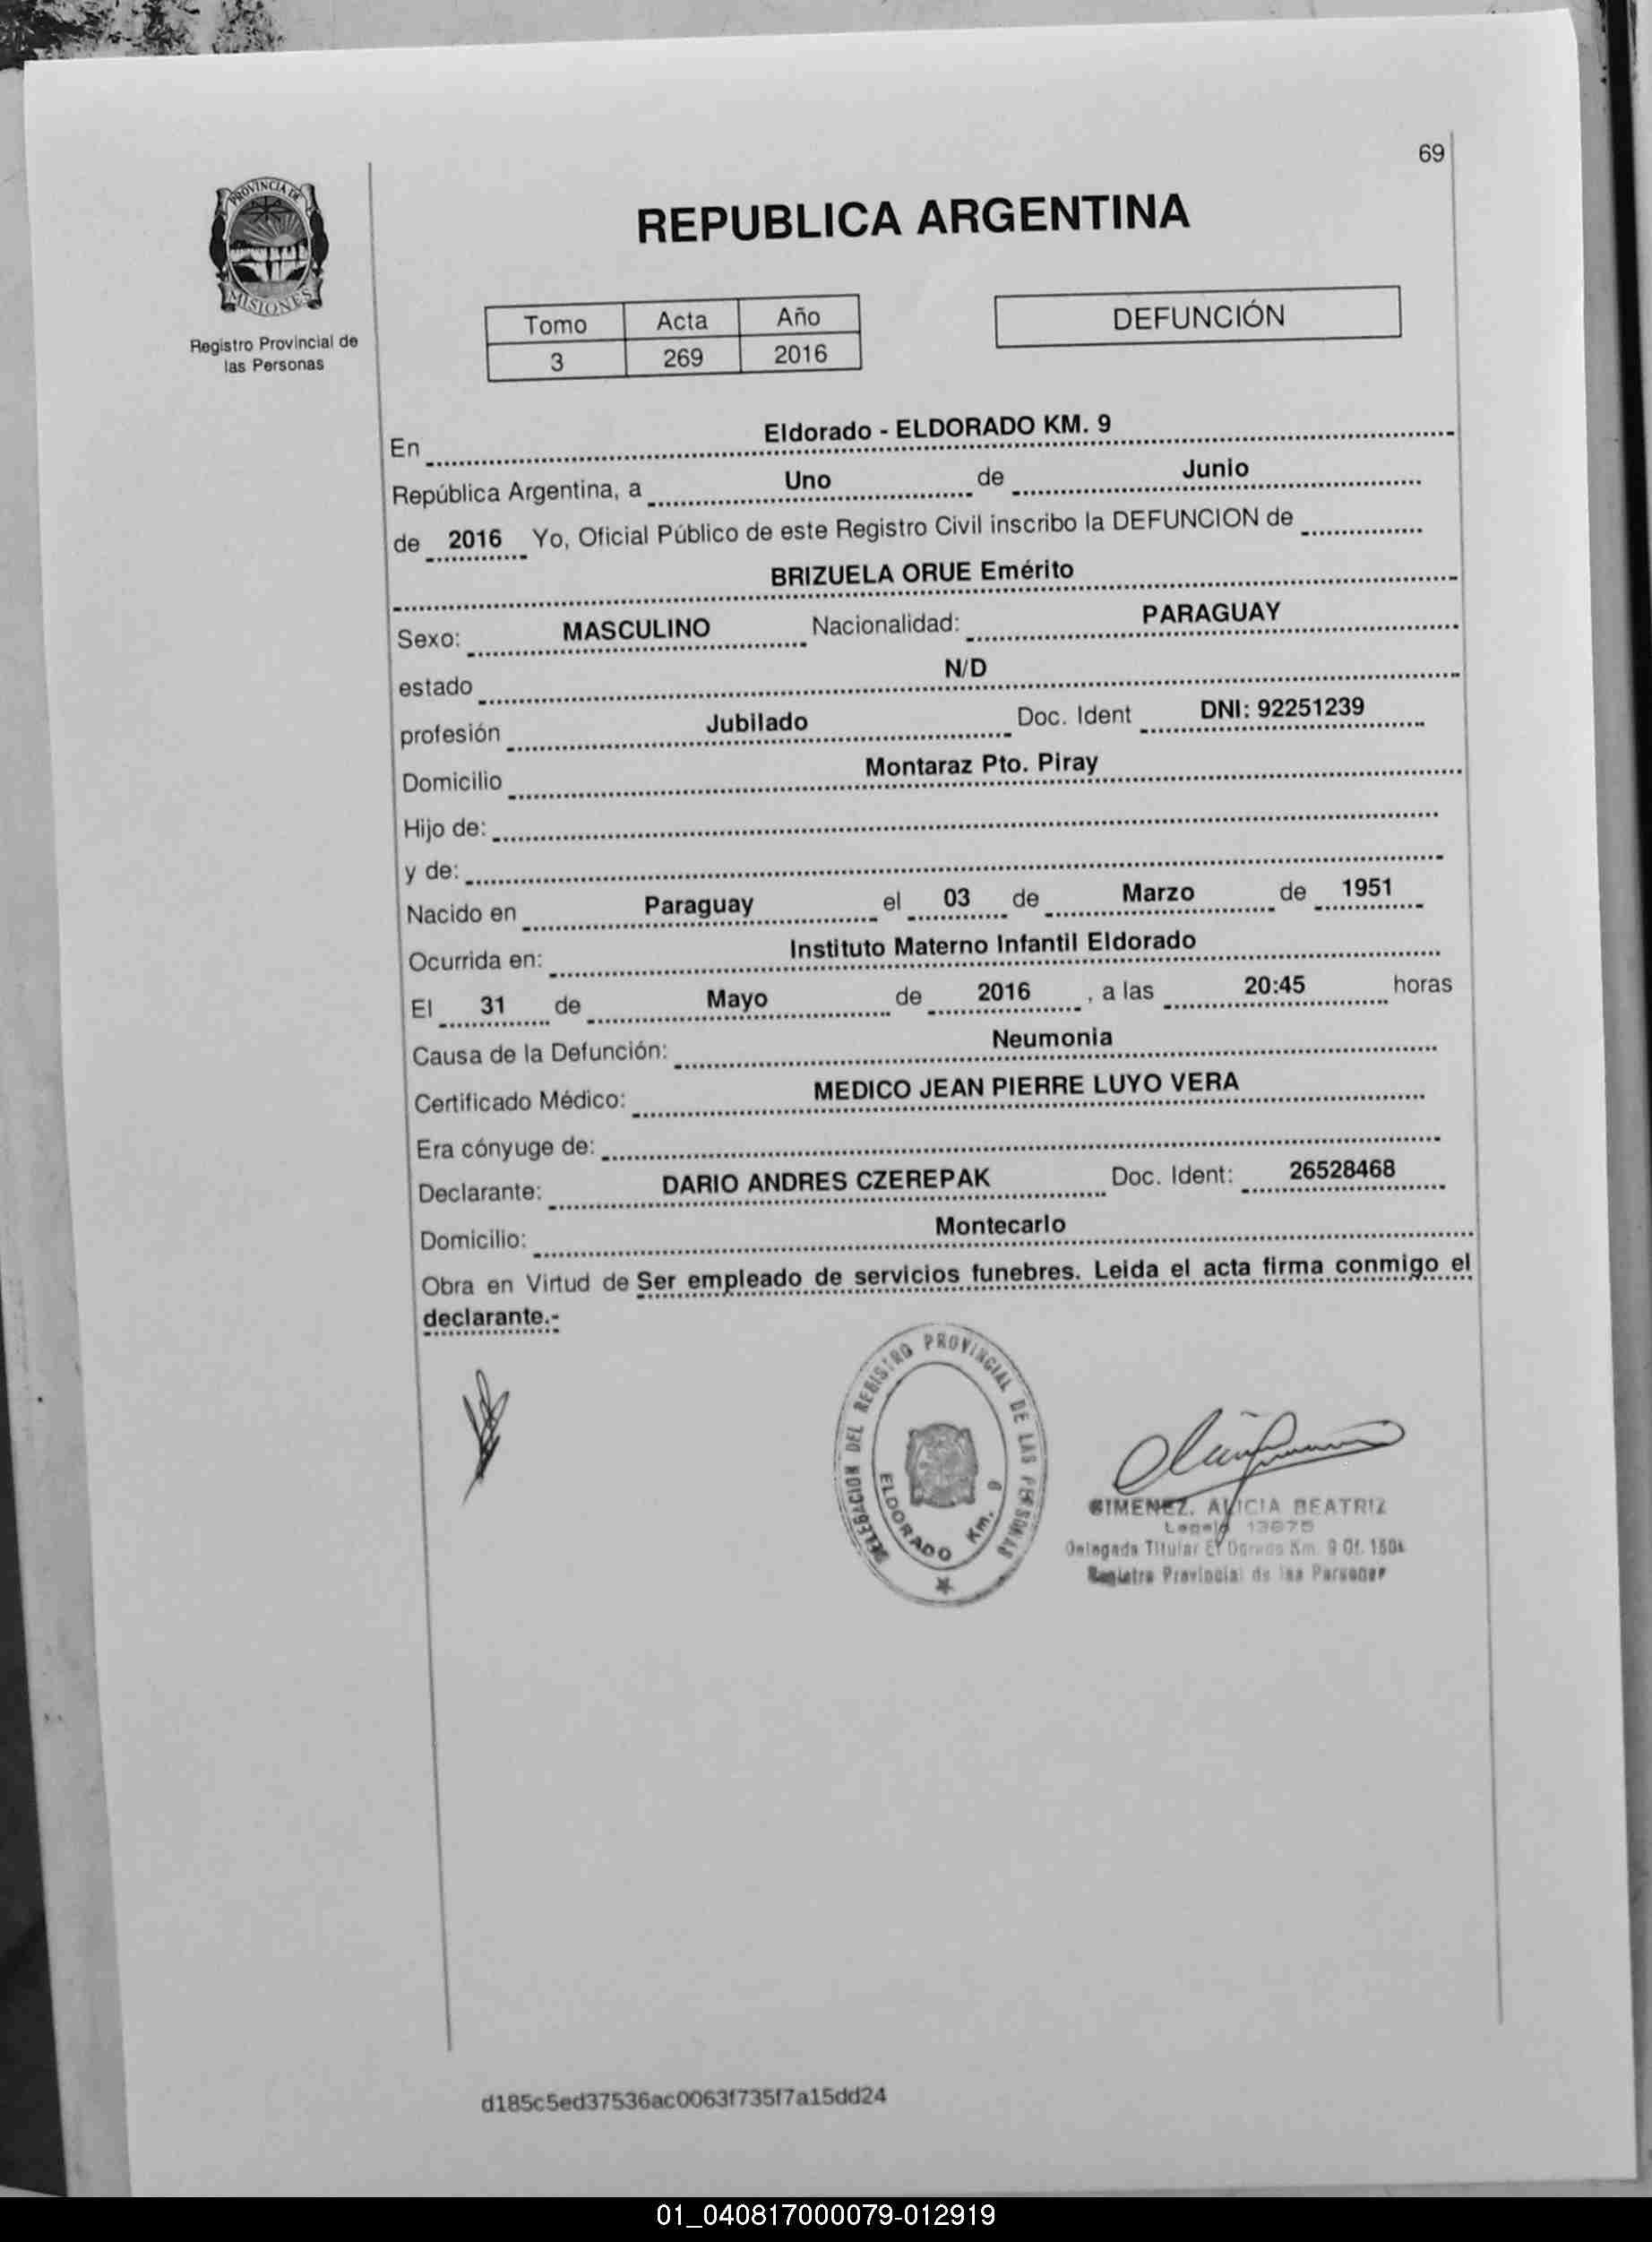 69
PROVINCIA DE
MISIONES
Registro Provincial de
las Personas
REPUBLICA ARGENTINA
Tomo Acta Año
3 269 2016
DEFUNCIÓN
En Eldorado - ELDORADO KM. 9
República Argentina, a Uno de Junio
de 2016 Yo, Oficial Público de este Registro Civil inscribo la DEFUNCION de
BRIZUELA ORUE Emérito
Sexo: MASCULINO Nacionalidad: PARAGUAY
estado N/D
profesión Jubilado Doc. Ident DNI: 92251239
Domicilio Montaraz Pto. Piray
Hijo de:
y de:
Nacido en Paraguay el 03 de Marzo de 1951
Ocurrida en: Instituto Materno Infantil Eldorado
El 31 de Mayo de 2016 , a las 20:45 horas
Causa de la Defunción: Neumonia
Certificado Médico: MEDICO JEAN PIERRE LUYO VERA
Era cónyuge de:
Declarante: DARIO ANDRES CZEREPAK Doc. Ident: 26528468
Domicilio: Montecarlo
Obra en Virtud de Ser empleado de servicios funebres. Leida el acta firma conmigo el
declarante.-
DELEGACION DEL REGISTRO PROVINCIAL DE LAS PERSONAS
ELDORADO Km. 9
GIMENEZ. ALICIA BEATRIZ
Legajo
Delegada Titular El Dorado Km. 9 Of.
Registro Provincial de las Personas
d185c5ed37536ac0063f735f7a15dd24
01_040817000079-012919